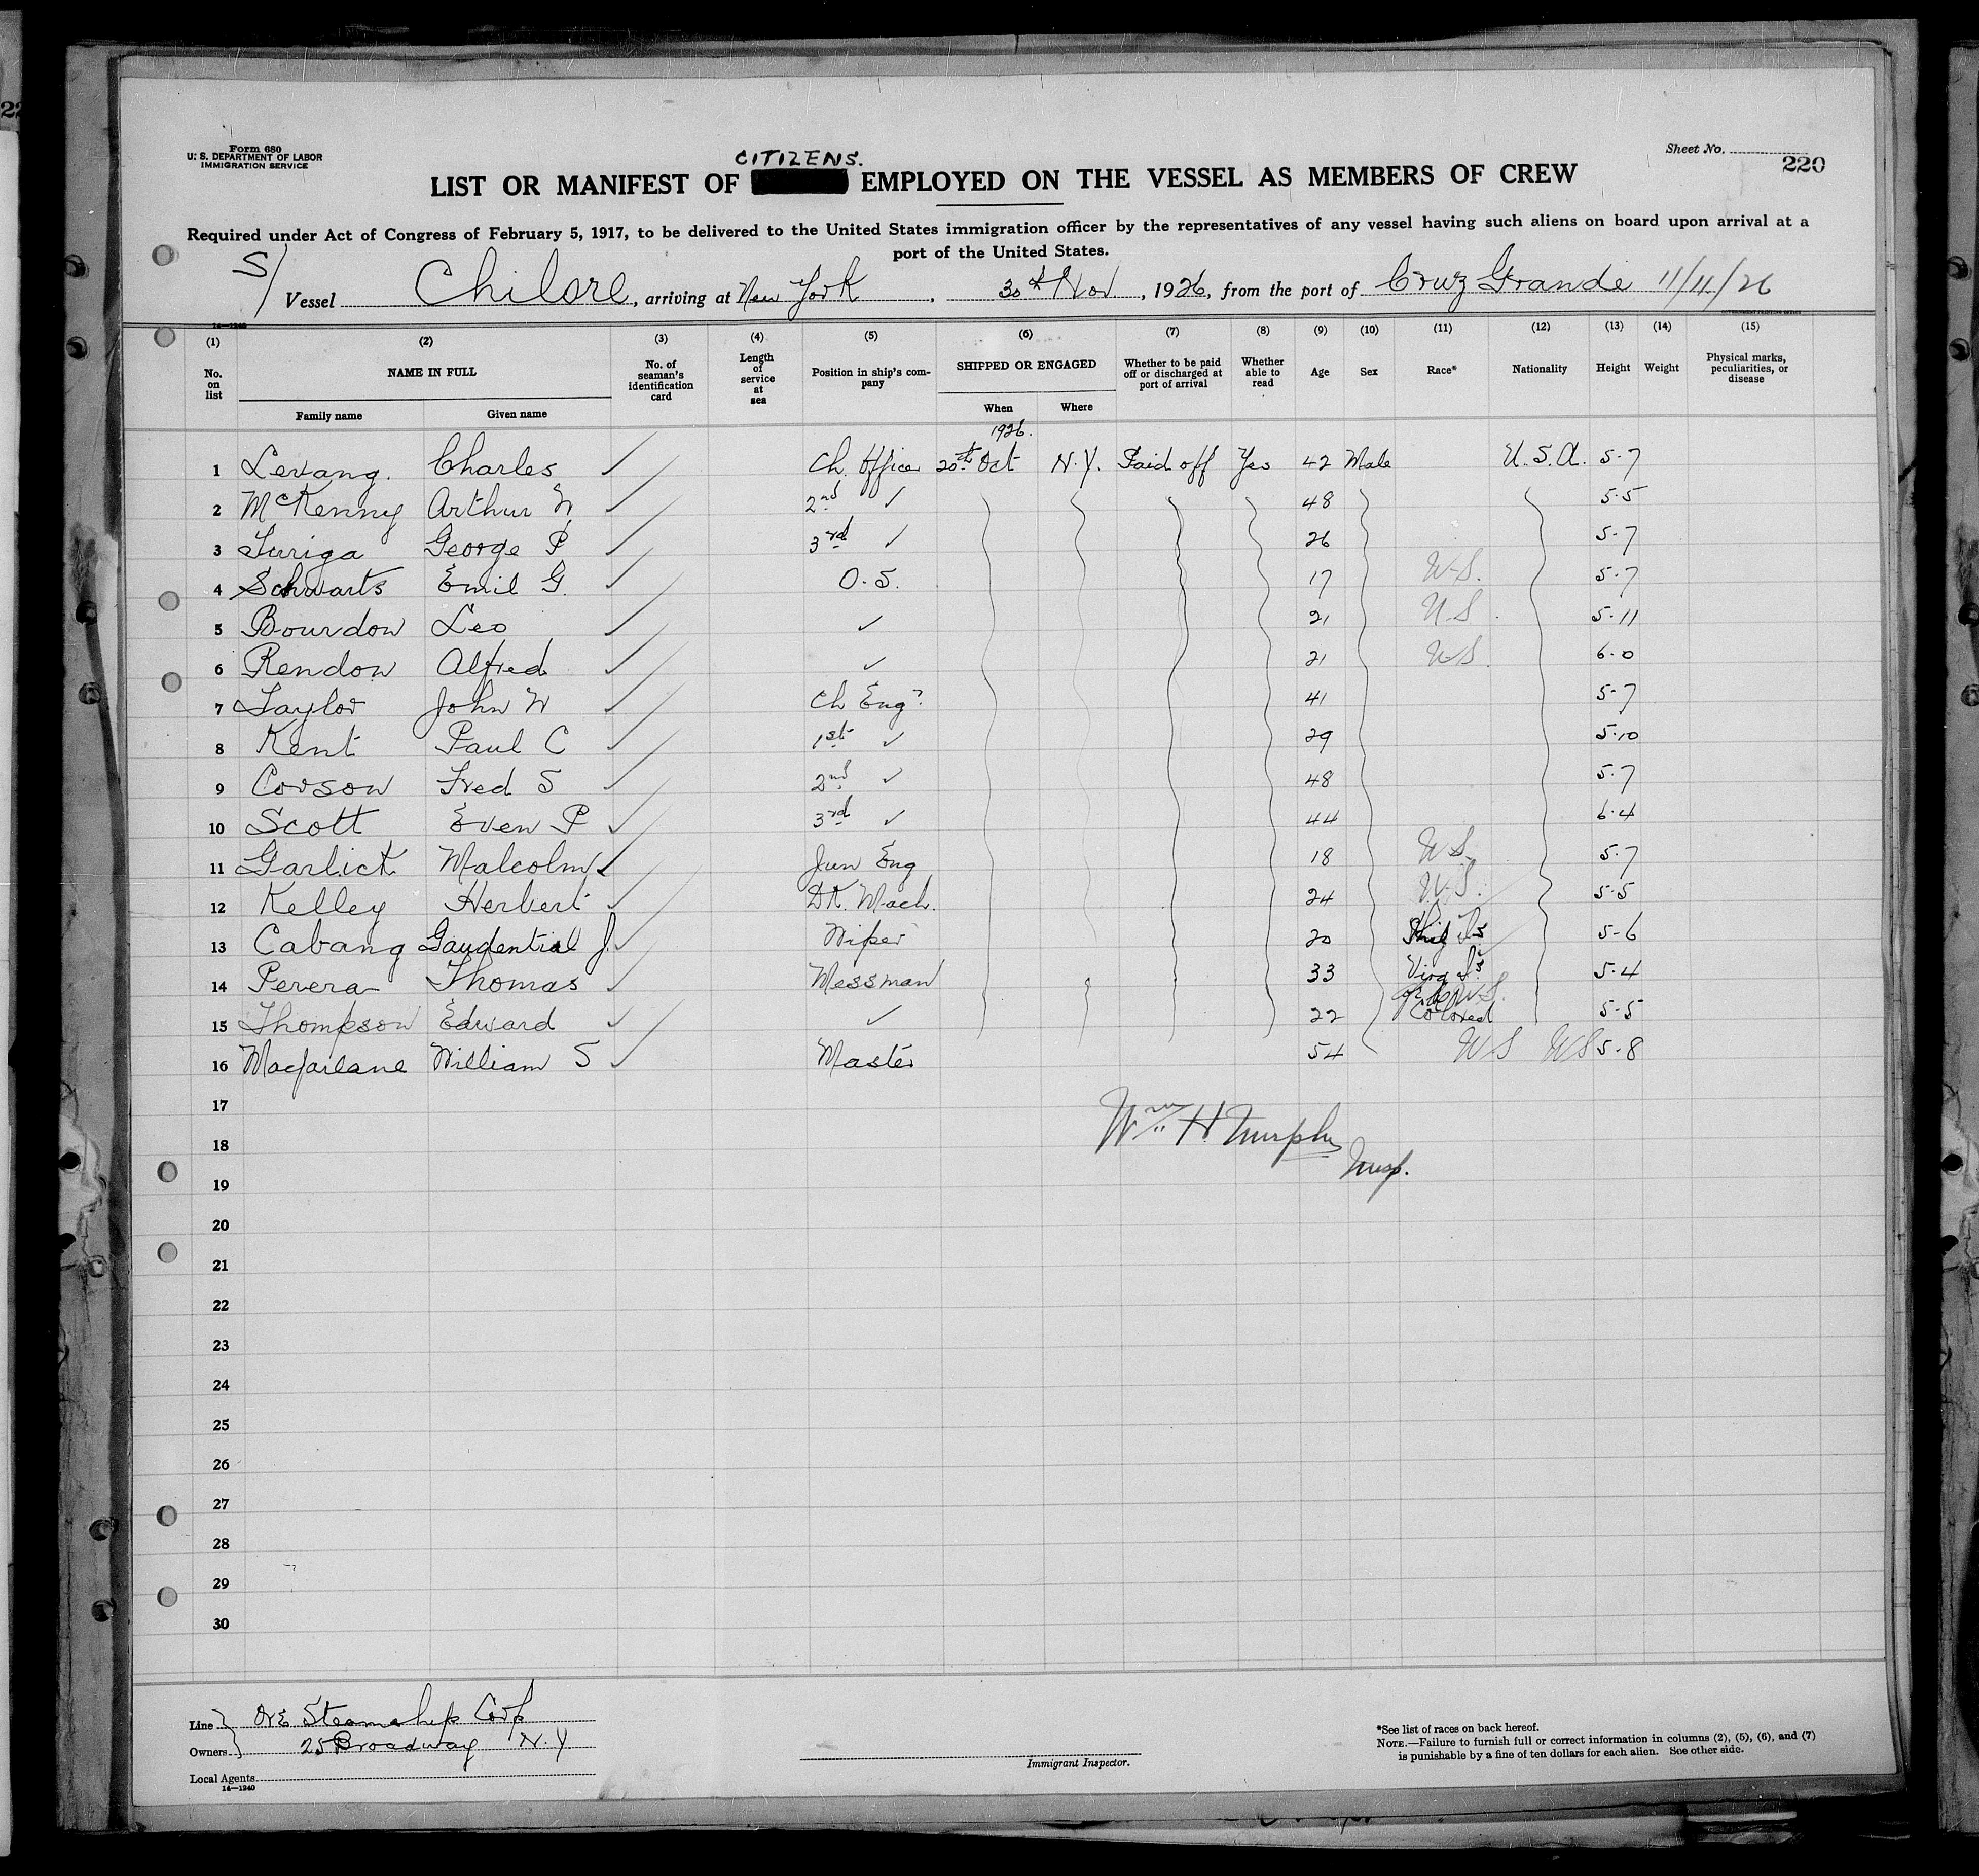 Form 680
U. S. DEPARTMENT OF LABOR
IMMIGRATION SERVICE
Sheet No.
220
CITIZENS.
LIST OR MANIFEST OF EMPLOYED ON THE VESSEL AS MEMBERS OF CREW
Required under Act of Congress of February 5, 1917, to be delivered to the United States immigration officer by the representatives of any vessel having such aliens on board upon arrival at a
port of the United States.
S/ Vessel Chilore, arriving at New York, 30th Nov, 1926, from the port of Cruz Grande 11/11/26
14—1240
(1) (2) (3) (4) (5) (6) (7) (8) (9) (10) (11) (12) (13) (14) (15)
No. on list NAME IN FULL Family name Given name No. of seaman's identification card Length of service at sea Position in ship's company SHIPPED OR ENGAGED When Where Whether to be paid off or discharged at port of arrival Whether able to read Age Sex Race* Nationality Height Weight Physical marks, peculiarities, or disease
1926.
1 Levang. Charles ✓ Ch. Officer 20th Oct N.Y. Paid off Yes 42 Male U.S.A. 5-7
2 McKenny Arthur W ✓ 2nd ✓ 48 5-5
3 Turiga George P ✓ 3rd ✓ 26 5-7
4 Schwarts Emil G. ✓ O.S. 17 U-S. 5-7
5 Bourdow Leo ✓ ✓ 21 U S 5-11
6 Rendow Alfred ✓ ✓ 21 U S. 6-0
7 Taylor John W ✓ Ch Eng 41 5-7
8 Kent Paul C ✓ 1st ✓ 29 5-10
9 Corson Fred S ✓ 2nd ✓ 48 5-7
10 Scott Even P ✓ 3rd ✓ 44 6-4
11 Garlick Malcolm ✓ Jun Eng 18 U S. 5-7
12 Kelley Herbert ✓ DK. Mach. 24 U.S. 5-5
13 Cabang Gaudential J. ✓ Wiper 20 Phil Is 5-6
14 Perera Thomas ✓ Messman 33 Virg Is 5-4
15 Thompson Edward ✓ ✓ 22 Colored 5-5
16 Macfarlane William S ✓ Master 54 US US 5-8
17
Wm H Murphy
18
Insp.
19
20
21
22
23
24
25
26
27
28
29
30
Line Ore Steamship Corp
Owners 25 Broadway N.Y
Local Agents
14—1240
Immigrant Inspector.
*See list of races on back hereof.
NOTE.—Failure to furnish full or correct information in columns (2), (5), (6), and (7)
is punishable by a fine of ten dollars for each alien. See other side.